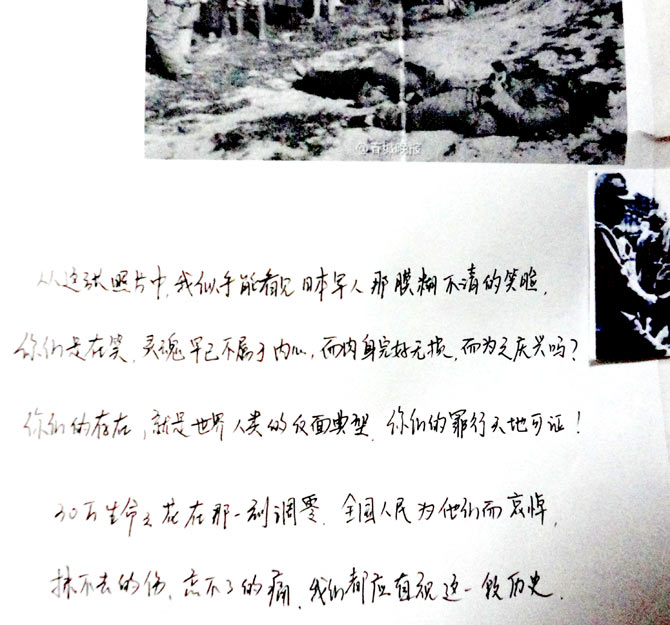 @春城晚报
从这张照片中,我似乎能看见日本军人那模糊不清的笑脸.
你们是在笑,灵魂早已不属于内心,而肉身完好无损,而为之庆兴吗?
你们的存在,就是世界人类的反面典型.你们的罪行天地可证!
30万生命之花在那一刻凋零.全国人民为他们而哀悼,
抹不去的伤,忘不了的痛,我们都应直视这一段历史.